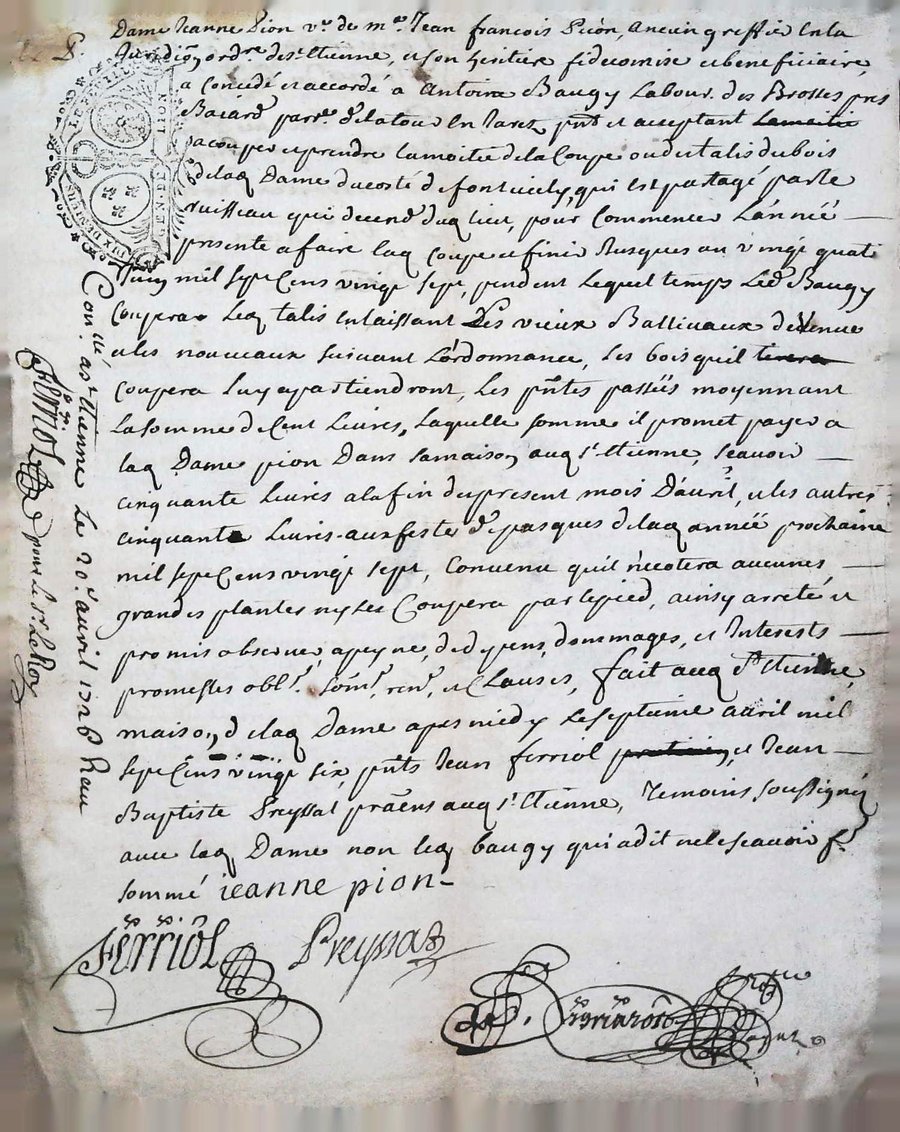 Dame Jeanne Pion v.e de m.e Jean françois Picon, ancien greffier en la
Juridiõn ord.re de st. Etienne, et son heritiere fidecomise et beneficiaire,
a concedé et accordé à Antoine Baugy Labour. des Brosses pres
parr. de la tour en Jarez, pnt et acceptant
a couper et prendre la moitié de la Coupe ou des talis du bois
de laq Dame du costé de qui est partagé par le
ruisseau qui decend duq lieu, pour commencer L'année
presente a faire laq coupe et finir Jusques au vingt quatre
Juin mil sept Cens vingt sept, pendent Lequel temps Led. Baugy
Coupera Lesq talis en laissant Les vieux Ballivaux devenue
et les nouveaux suivant L'ordonnance, Les bois quil tirera
coupera Luy apartiendront, Les pñtes passées moyennant
La somme de Cent Livres, Laquelle somme il promet payer a
laq Dame pion Dans sa maison auq st. Etienne, scavoir
cinquante Livres a la fin du present mois D'avril, et les autres
cinquante Livres aux feste de pasques de laq année prochaine
mil sept Cens vingt sept, Convenu quil n'ecotera aucunes
grandes plantes ny Les Coupera par le pied, ainsy arreté et
promis observer, a peyne, de depens, dommages, et Interests
promesses obl. soum. ren. et Clauses, fait auq st. Etienne,
maison, de laq Dame apres midy Le septieme avril mil
sept Cens vingt six, pñts Jean ferriol praticien, et Jean
Baptiste Preyssat auq st. Etienne, Temoins soussignés
avec laq Dame non Leq baugy qui a dit ne le scavoir
sommé jeanne pion
Ferriol Preyssat
Con.llé a st. Etienne Le 20.e avril 1726 Reçu
pour Le Sr. Le Roy
GEN. DE LION
DIX DENIERS